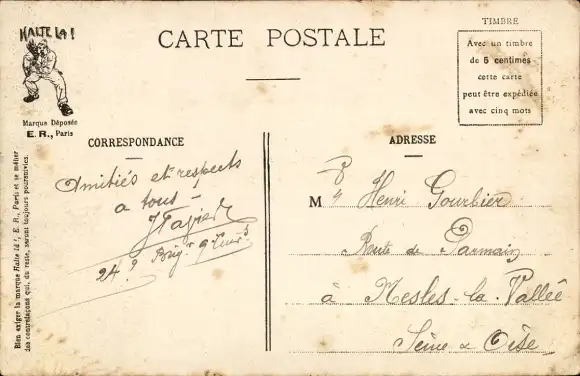 HALTE LÀ !
Marque Déposée
E. R., Paris
CARTE POSTALE
TIMBRE
Avec un timbre
de 5 centimes
cette carte
peut être expédiée
avec cinq mots
CORRESPONDANCE
Amitiés et respects
a tous -
24e
ADRESSE
M Henri Gourbier
Route de Parmain
à Nesles-la-Vallée
Seine & Oise
Bien exiger la marque Halte là !, E. R., Paris et se méfier
des contrefaçons qui, du reste, seront toujours poursuivies.